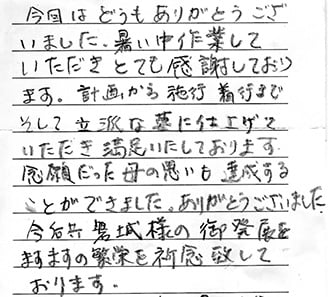 今回はどうもありがとうござ
いました、暑い中作業して
いただきとても感謝しており
ます。計画から施行 着行まで
そして立派な墓に仕上げて
いただき満足いたしております
念願だった母の思いも達成する
ことができました。ありがとうございました
今后共 磐城様の御発展と
ますますの繁栄を祈念致して
おります。